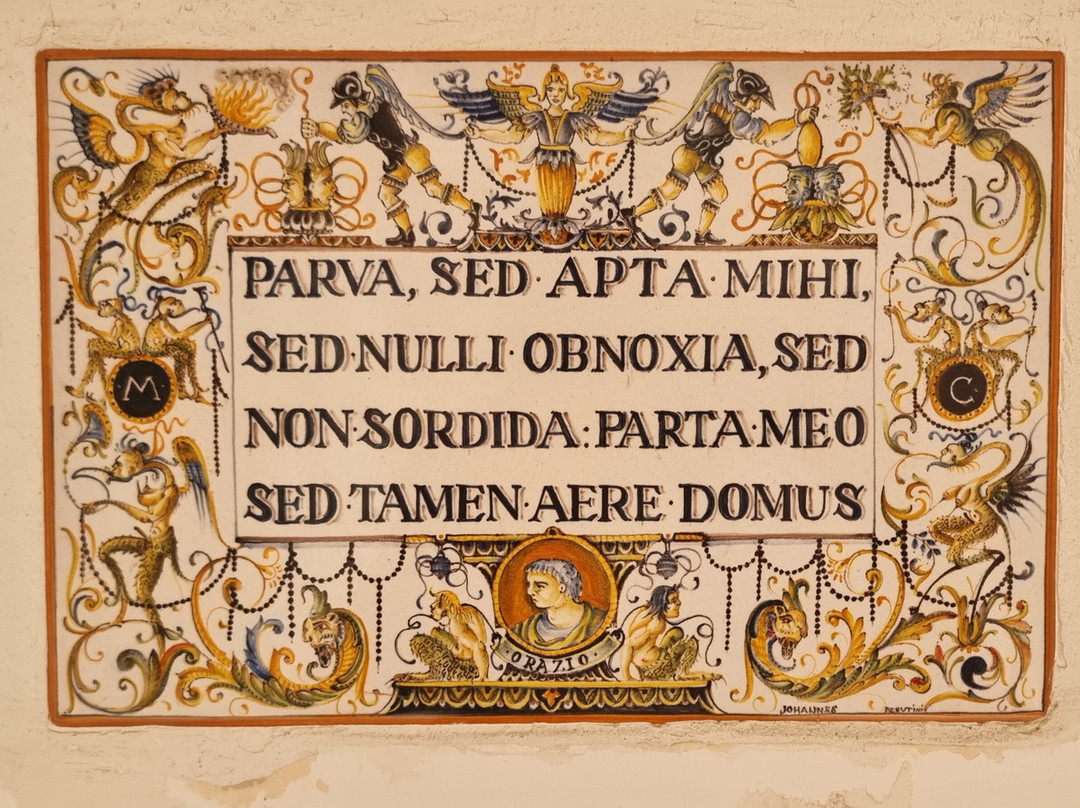 PARVA, SED·APTA·MIHI,
SED·NULLI·OBNOXIA, SED
NON·SORDIDA:PARTA·MEO
SED·TAMEN·AERE·DOMUS
·M·
C
·ORAZIO·
JOHANNES